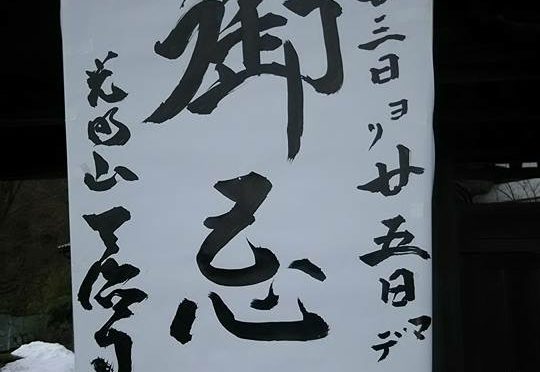 三日ヨリ廿五日マデ
御忌
光明山